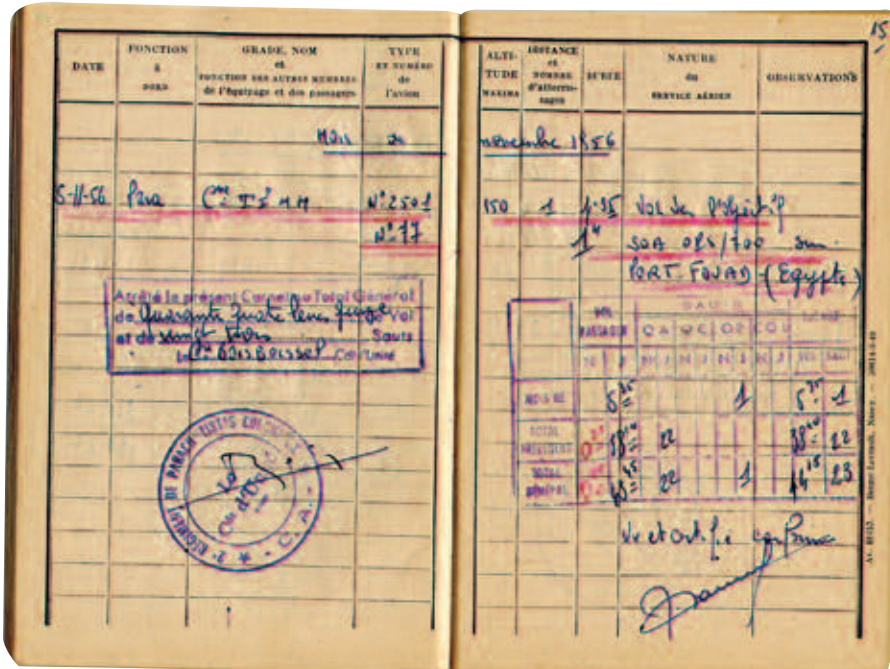 15
DATE
FONCTION
à
BORD
GRADE, NOM
et
FONCTION DES AUTRES MEMBRES
de l'équipage et des passagers
TYPE
ET NUMÉRO
de
l'avion
Mois de
5-11-56 Para Cne MM N° 2501
N° 77
Arrêté le présent Carnet au Total Général
de Quarante quatre heures quinze de Vol
et de vingt trois Sauts
Le Cne BOISBOISSEL Cdt l'Unité
2e RÉGIMENT DE PARACHUTISTES COLONIAUX
Le
Cne d'
C.A.
ALTI-
TUDE
MAXIMA
DISTANCE
et
NOMBRE
d'atterris-
sages
DURÉE
NATURE
du
SERVICE AÉRIEN
OBSERVATIONS
novembre 1956
150 1 4.35 Vol
1H SOA OPS/700 sur
PORT FOUAD (Egypte)
SAUTS
VOL
PASSAGER
OA OC OP COU
VOL SAUT
MOIS DE 5 35 1 5 35 1
TOTAL
PRÉCÉDENT 38 40 22 38 40 22
TOTAL
GÉNÉRAL 22 1 44 15 23
Vu et certifié conforme
Berger-Levrault, Nancy